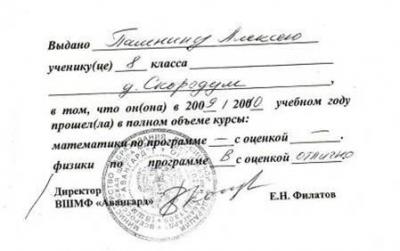 Выдано Паленину Алексею
ученику(це) 8 класса
д. Скородум
в том, что он(она) в 2009 / 2010 учебном году
прошел(ла) в полном объеме курсы:
математики по программе — с оценкой —
физики по программе В с оценкой отлично
Директор
ВШМФ «Авангард» Е.Н. Филатов